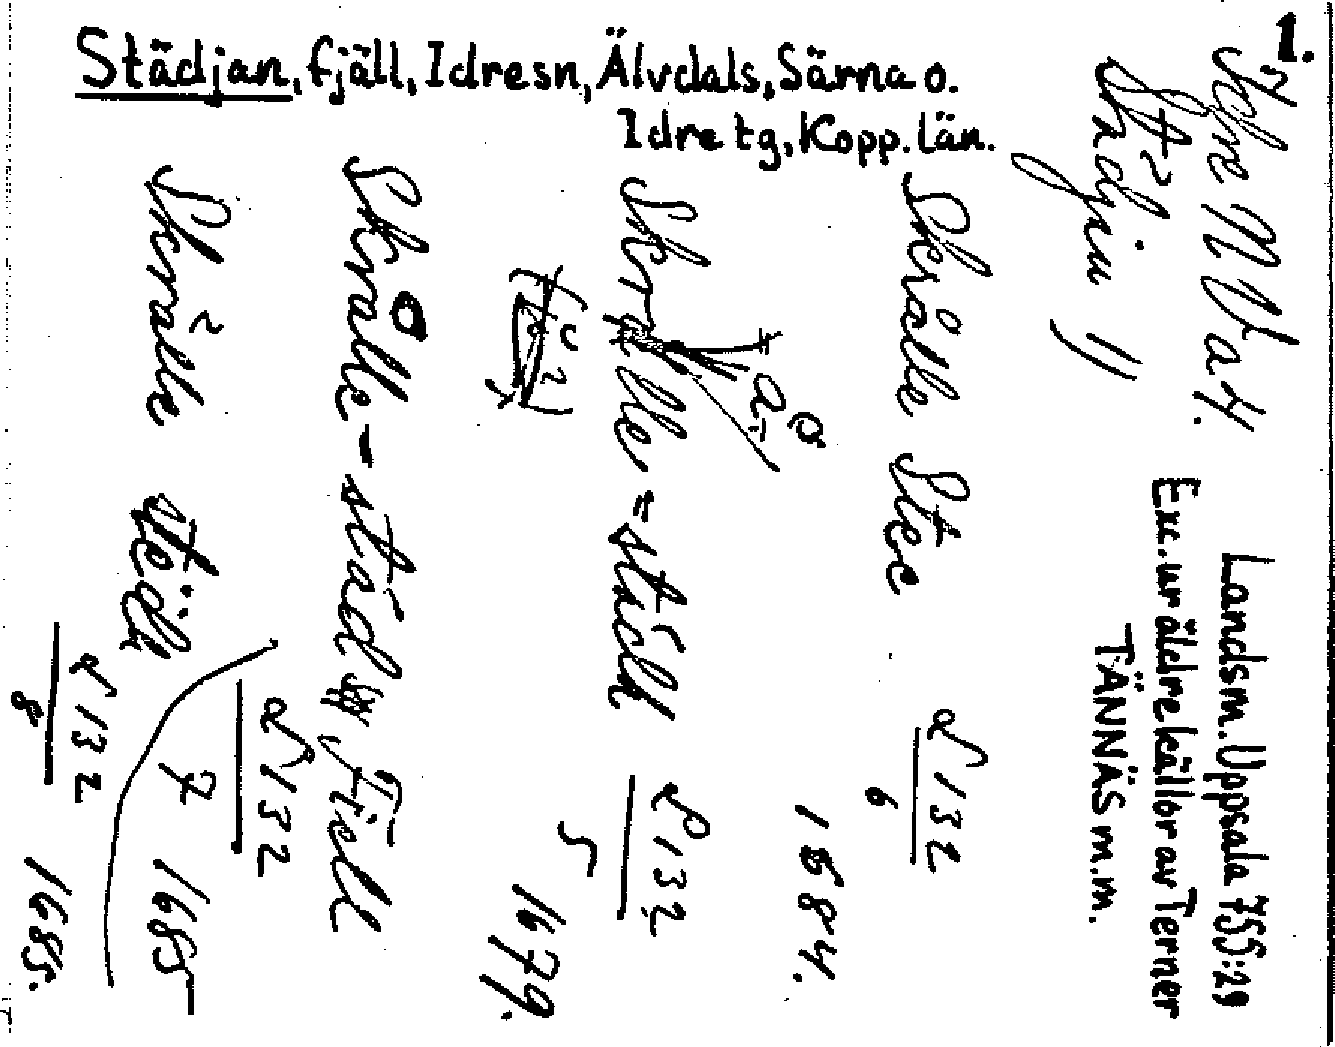 1.
Städjan, fjäll, Idresn, Älvdals, Särna o.
Idre tg, Kopp. län.
Landsm. Uppsala 755:29
Exc. ur äldre källor av Terner
TÄNNÄS m.m.
Idre N V at.
Städjin
Skrålle Stee 132/6 1684.
Skrålle=städt 132/5 1679.
Skrålle-städ, Fiell 132/7 1685
Skrålle städt 132/8 1685.